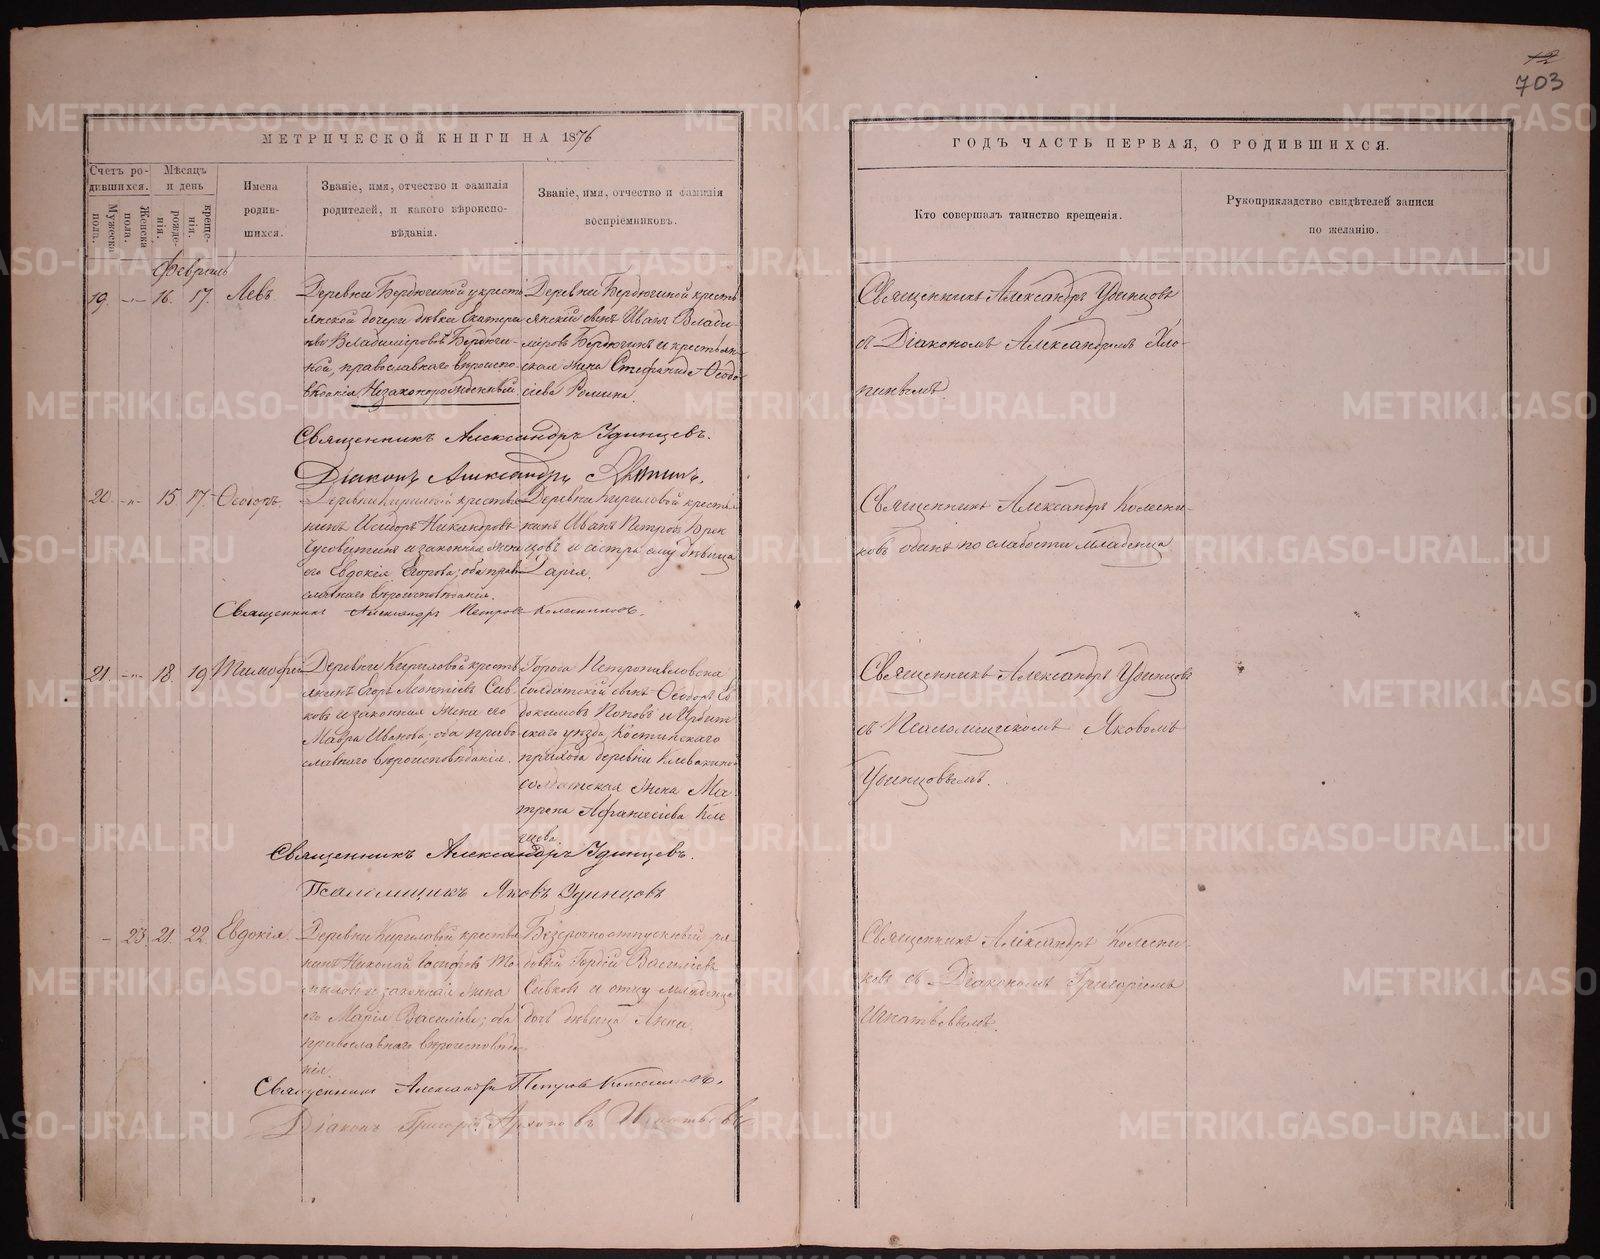 12
703
МЕТРИЧЕСКОЙ КНИГИ НА 1876
ГОДЪ ЧАСТЬ ПЕРВАЯ, О РОДИВШИХСЯ.
Счетъ ро-
дившихся.
Мужеска
пола.
Женска
пола.
Мѣсяцъ
и день
рожде-
нія.
креще-
нія.
Имена
родив-
шихся.
Званіе, имя, отчество и фамилія
родителей, и какого вѣроиспо-
вѣданія.
Званіе, имя, отчество и фамилія
воспріемниковъ.
Кто совершалъ таинство крещенія.
Рукоприкладство свидѣтелей записи
по желанію.
Февраль
19. -"- 16. 17. Левъ
Деревни Бердюгиной у кресть
янской дочери дѣвки Екатери
ны Владиміровой Бердюги-
ной, православнаго вѣроиспо-
вѣданія, Незаконнорожденный.
Деревни Бердюгиной кресть
янскій сынъ Иванъ Влади-
міровъ Бердюгинъ и крестьян-
ская жена Стефанида Ѳеодо
сіева
Священникъ Александръ Удинцовъ
съ Діакономъ Александромъ Хло-
Священникъ Александръ Удинцевъ.
Діаконъ Александръ
20. -"- 15 17. Ѳеодоръ.
Деревни Кириловой крестья
нинъ Исидоръ Никандровъ
Чусовитинъ и законная жена
его Евдокія Егорова; оба право
славнаго вѣроисповѣданія.
Деревни Кириловой крестья
нинъ Иванъ Петровъ Брек
цовъ и сестра ему дѣвица
Дарія.
Священникъ Александръ Колесни-
ковъ одинъ по слабости младенца
Священникъ Александръ Петровъ Колесниковъ.
21. -"- 18. 19 Тимофей
Деревни Кириловой кресть
янинъ Егоръ Леонтіевъ Сив
ковъ и законная жена его
Мавра Иванова; оба право
славнаго вѣроисповѣданія.
Города Петропавловска
солдатскій сынъ Ѳеодоръ Ев
докимовъ Поповъ и Ирбит
скаго уѣзда, Костинскаго
прихода деревни Клевакиной
солдатская жена Ма
трена Афанасіева Кле
Священникъ Александръ Удинцовъ
съ Псаломщикомъ Яковомъ
Удинцовымъ.
Священникъ Александръ Удинцевъ.
Псаломщикъ Яковъ Удинцовъ
- 23. 21. 22. Евдокія.
Деревни Кириловой крестья
нинъ Николай Іосифовъ То
миловъ и законная жена
его Марія Васильева; оба
православнаго вѣроисповѣда
нія.
Безсрочноотпускный ря-
довый Гордій Васильевъ
Сивковъ и отцу младенца
дочь дѣвица Анна.
Священникъ Александръ Колесни-
ковъ съ Діакономъ Григоріемъ
Игнатьевымъ.
Священникъ Александръ Петровъ Колесниковъ.
Діаконъ Григорій Архиповъ Игнатьевъ
METRIKI.GASO-URAL.RU